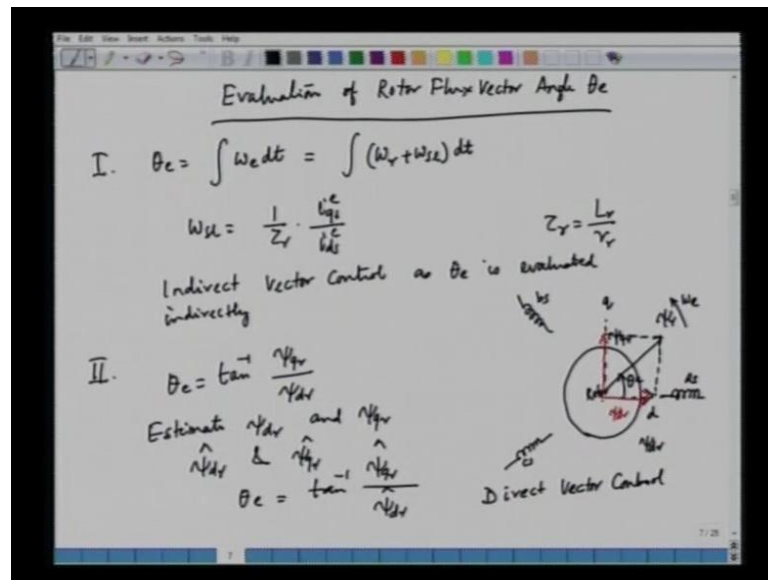 File Edit View Insert Actions Tools Help
Evaluation of Rotor Flux Vector Angle θe
I. θe = ∫ ωe dt = ∫ (ωr + ωsl) dt
ωsl = 1/τr · i^e_qs / i^e_ds
τr = Lr/rr
Indirect Vector Control as θe is evaluated
indirectly
bs
q
ωe
ψr
ψqr
θe
as
ψdr
d
ψdr
II. θe = tan⁻¹ ψqr/ψdr
Estimate ψdr and ψqr
ψ̂dr & ψ̂qr
θe = tan⁻¹ ψ̂qr/ψ̂dr
Direct Vector Control
7/25
7